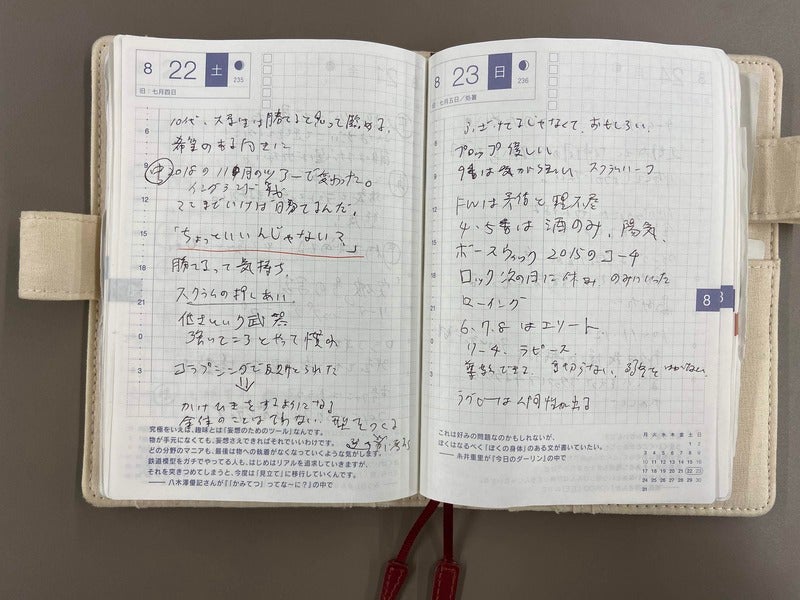 8 22 土
235
旧：七月四日
10代、大学生は勝てると思って臨める。
希望のある向きに
中 2018の11月のツアーで変わった。
イングランド戦
ここまでいけば勝てるんだ。
「ちょっといいんじゃない？」
勝てるって気持ち。
スクラムの押しあい
低さという武器
強いところとやって慣れ
コラプシングで反則とられた
⇓
かけひきをするようになる
全体のことはではない 型をつくる
究極をいえば、趣味とは「妄想のためのツール」なんです。
物が手元になくても、妄想さえできればそれでいいわけです。
どの分野のマニアも、最後は物への執着がなくなっていくような気がします。
鉄道模型をガチでやってる人も、はじめはリアルを追求していきますが、
それを突きつめてしまうと、今度は「見立て」に移行していくんです。
—— 八木澤優記さんが『「かみてつ」ってなーに？』の中で
8 23 日
236
旧：七月五日／処暑
ふざけてるじゃなくて、おもしろい。
プロップ 優しい
9番は気がつよい スクラムハーフ
FWは矛盾と理不尽
4、5番は酒のみ、陽気。
ボースウィック 2015のコーチ
ロック 次の日に休み のみにいった
ローイング
6、7、8はエリート
リーチ、ラピース
尊敬できて、裏切らない、弱音をはかない。
ラグビーは人間性が出る
これは好みの問題なのかもしれないが、
ぼくはなるべく「ぼくの身体」のある文が書いていたい。
—— 糸井重里が『今日のダーリン』の中で
8
月 火 水 木 金 土 日
1 2
3 4 5 6 7 8 9
10 11 12 13 14 15 16
17 18 19 20 21 22 23
24 25 26 27 28 29 30
31